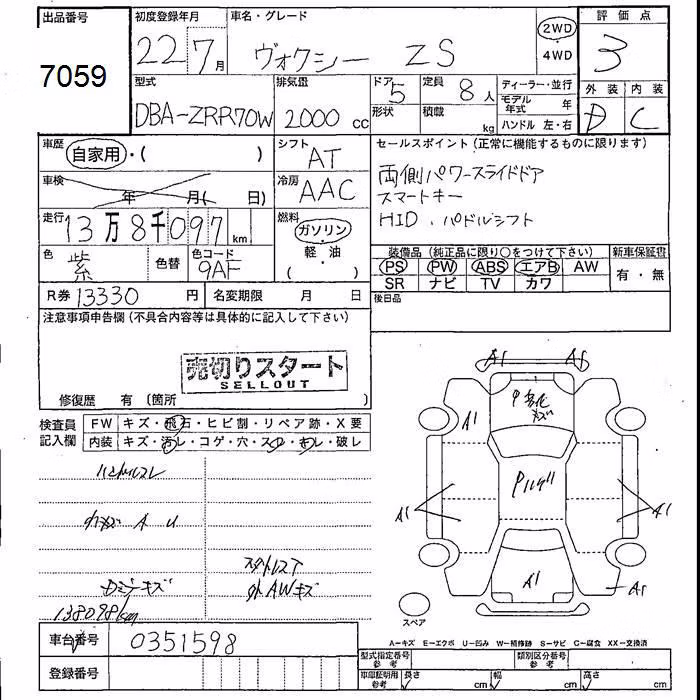 出品番号
7059
初度登録年月
22 7月
車名・グレード
ヴォクシー ZS
2WD
4WD
評価点
3
外装 内装
D C
型式
DBA-ZRR70W
排気量
2000 cc
ドア 5
形状
定員 8人
積載 kg
ディーラー・並行
モデル年式 年
ハンドル 左・右
車歴
自家用・( )
シフト
AT
車検
年 月( 日)
冷房
AAC
走行
13万8千097 km
燃料
ガソリン
軽・油
( )
色
紫
色替
色コード
9AF
R券 13330 円
名変期限 月 日
セールスポイント (正常に機能するものに限ります)
両側パワースライドドア
スマートキー
HID. パドルシフト
装備品 (純正品に限り○をつけて下さい)
PS PW ABS エアB AW
SR ナビ TV カワ
新車保証書
有・無
後日品
注意事項申告欄 (不具合内容等は具体的に記入して下さい)
売切りスタート
SELLOUT
修復歴 有 (箇所 )
検査員記入欄
FW キズ・飛石・ヒビ割・リペア跡・X要
内装 キズ・汚レ・コゲ・穴・スレ・キレ・破レ
ハンドルスレ
A U
キズ
外AWキズ
138098km
A1 A1
A1
A1 A1
A1
A1
スペア
A―キズ E―エクボ U―凹み W―補修跡 S―サビ C―腐食 XX―交換済
車台番号
0351598
登録番号
型式指定番号
参考
類別区分番号
参考
車庫証明用
参考
長さ cm
幅 cm
高さ cm